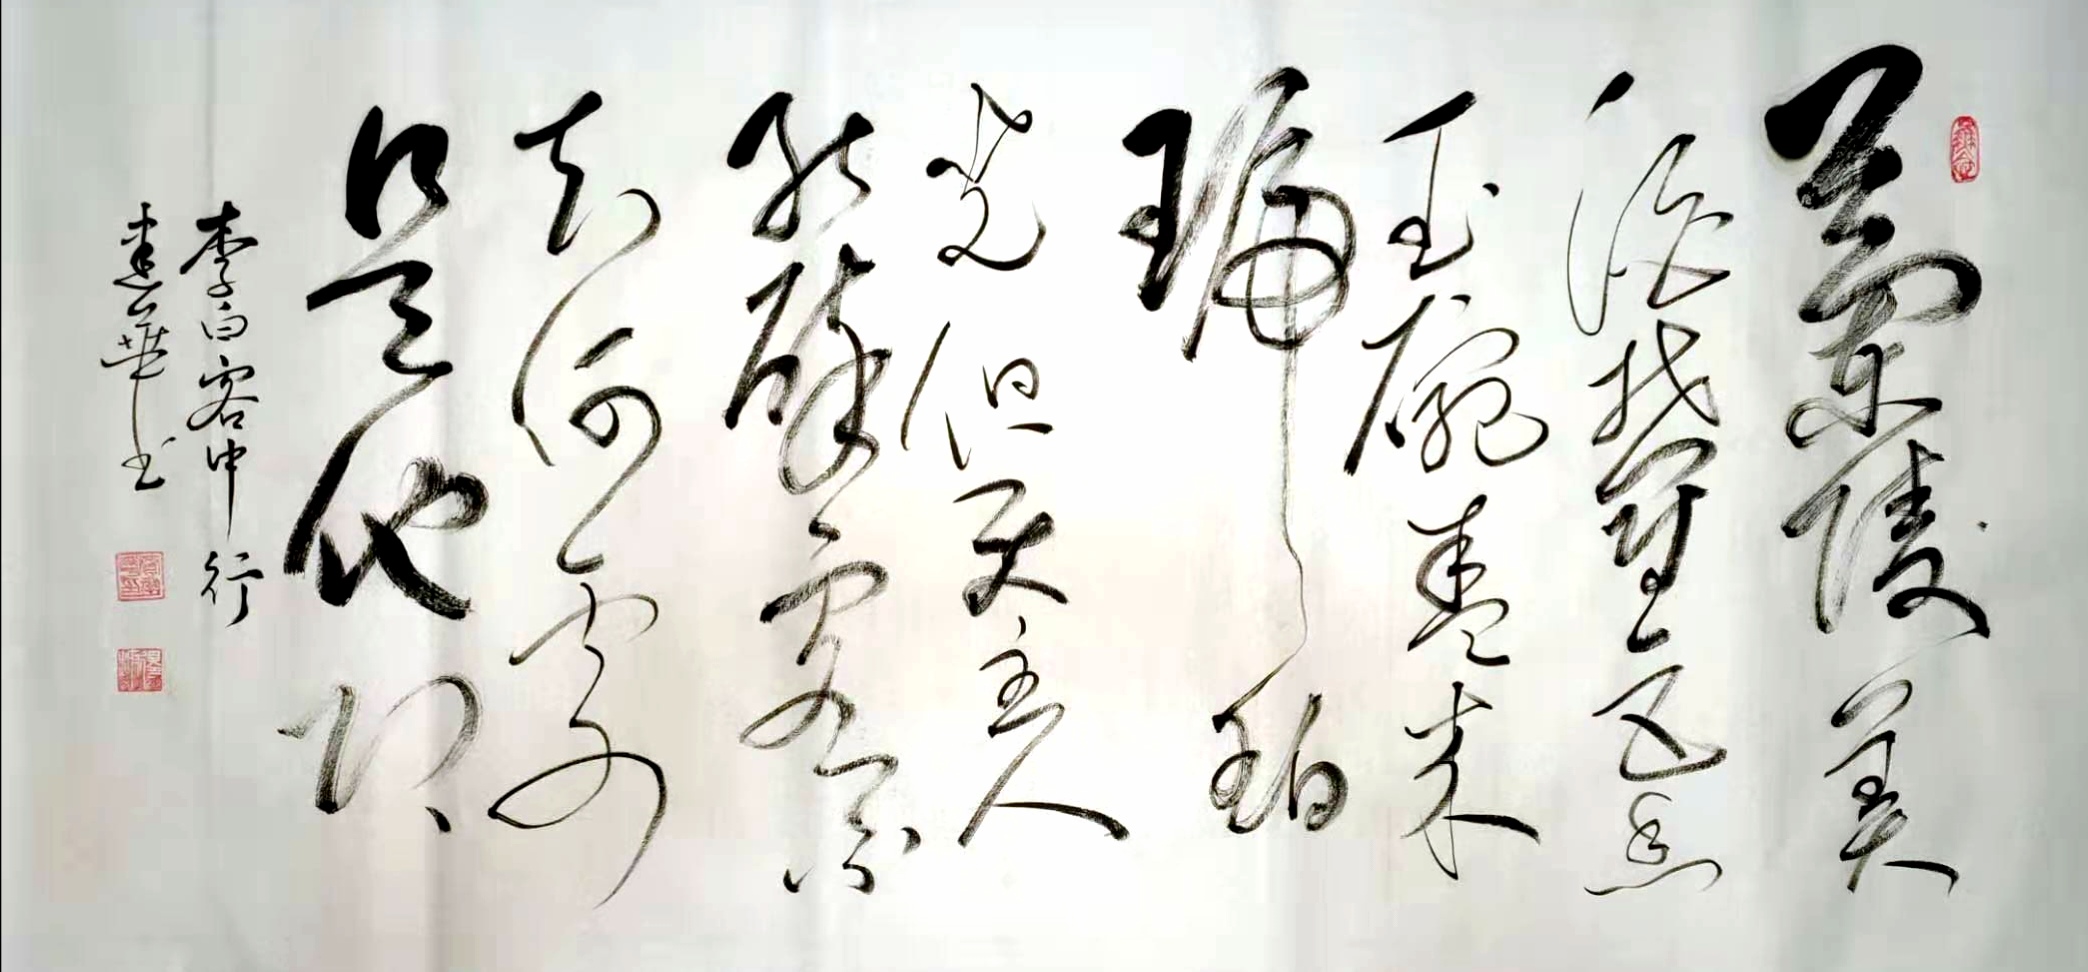 蘭陵美
酒鬱金香
玉碗盛来
琥珀
光但使主人
能醉客不
知何處
是他鄉
李白客中行
建華书